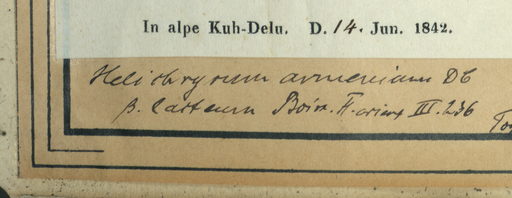 In alpe Kuh-Delu. D. 14. Jun. 1842.
Helichrysum armenium DC
β. lacteum Boiss. Fl. orient III. 236